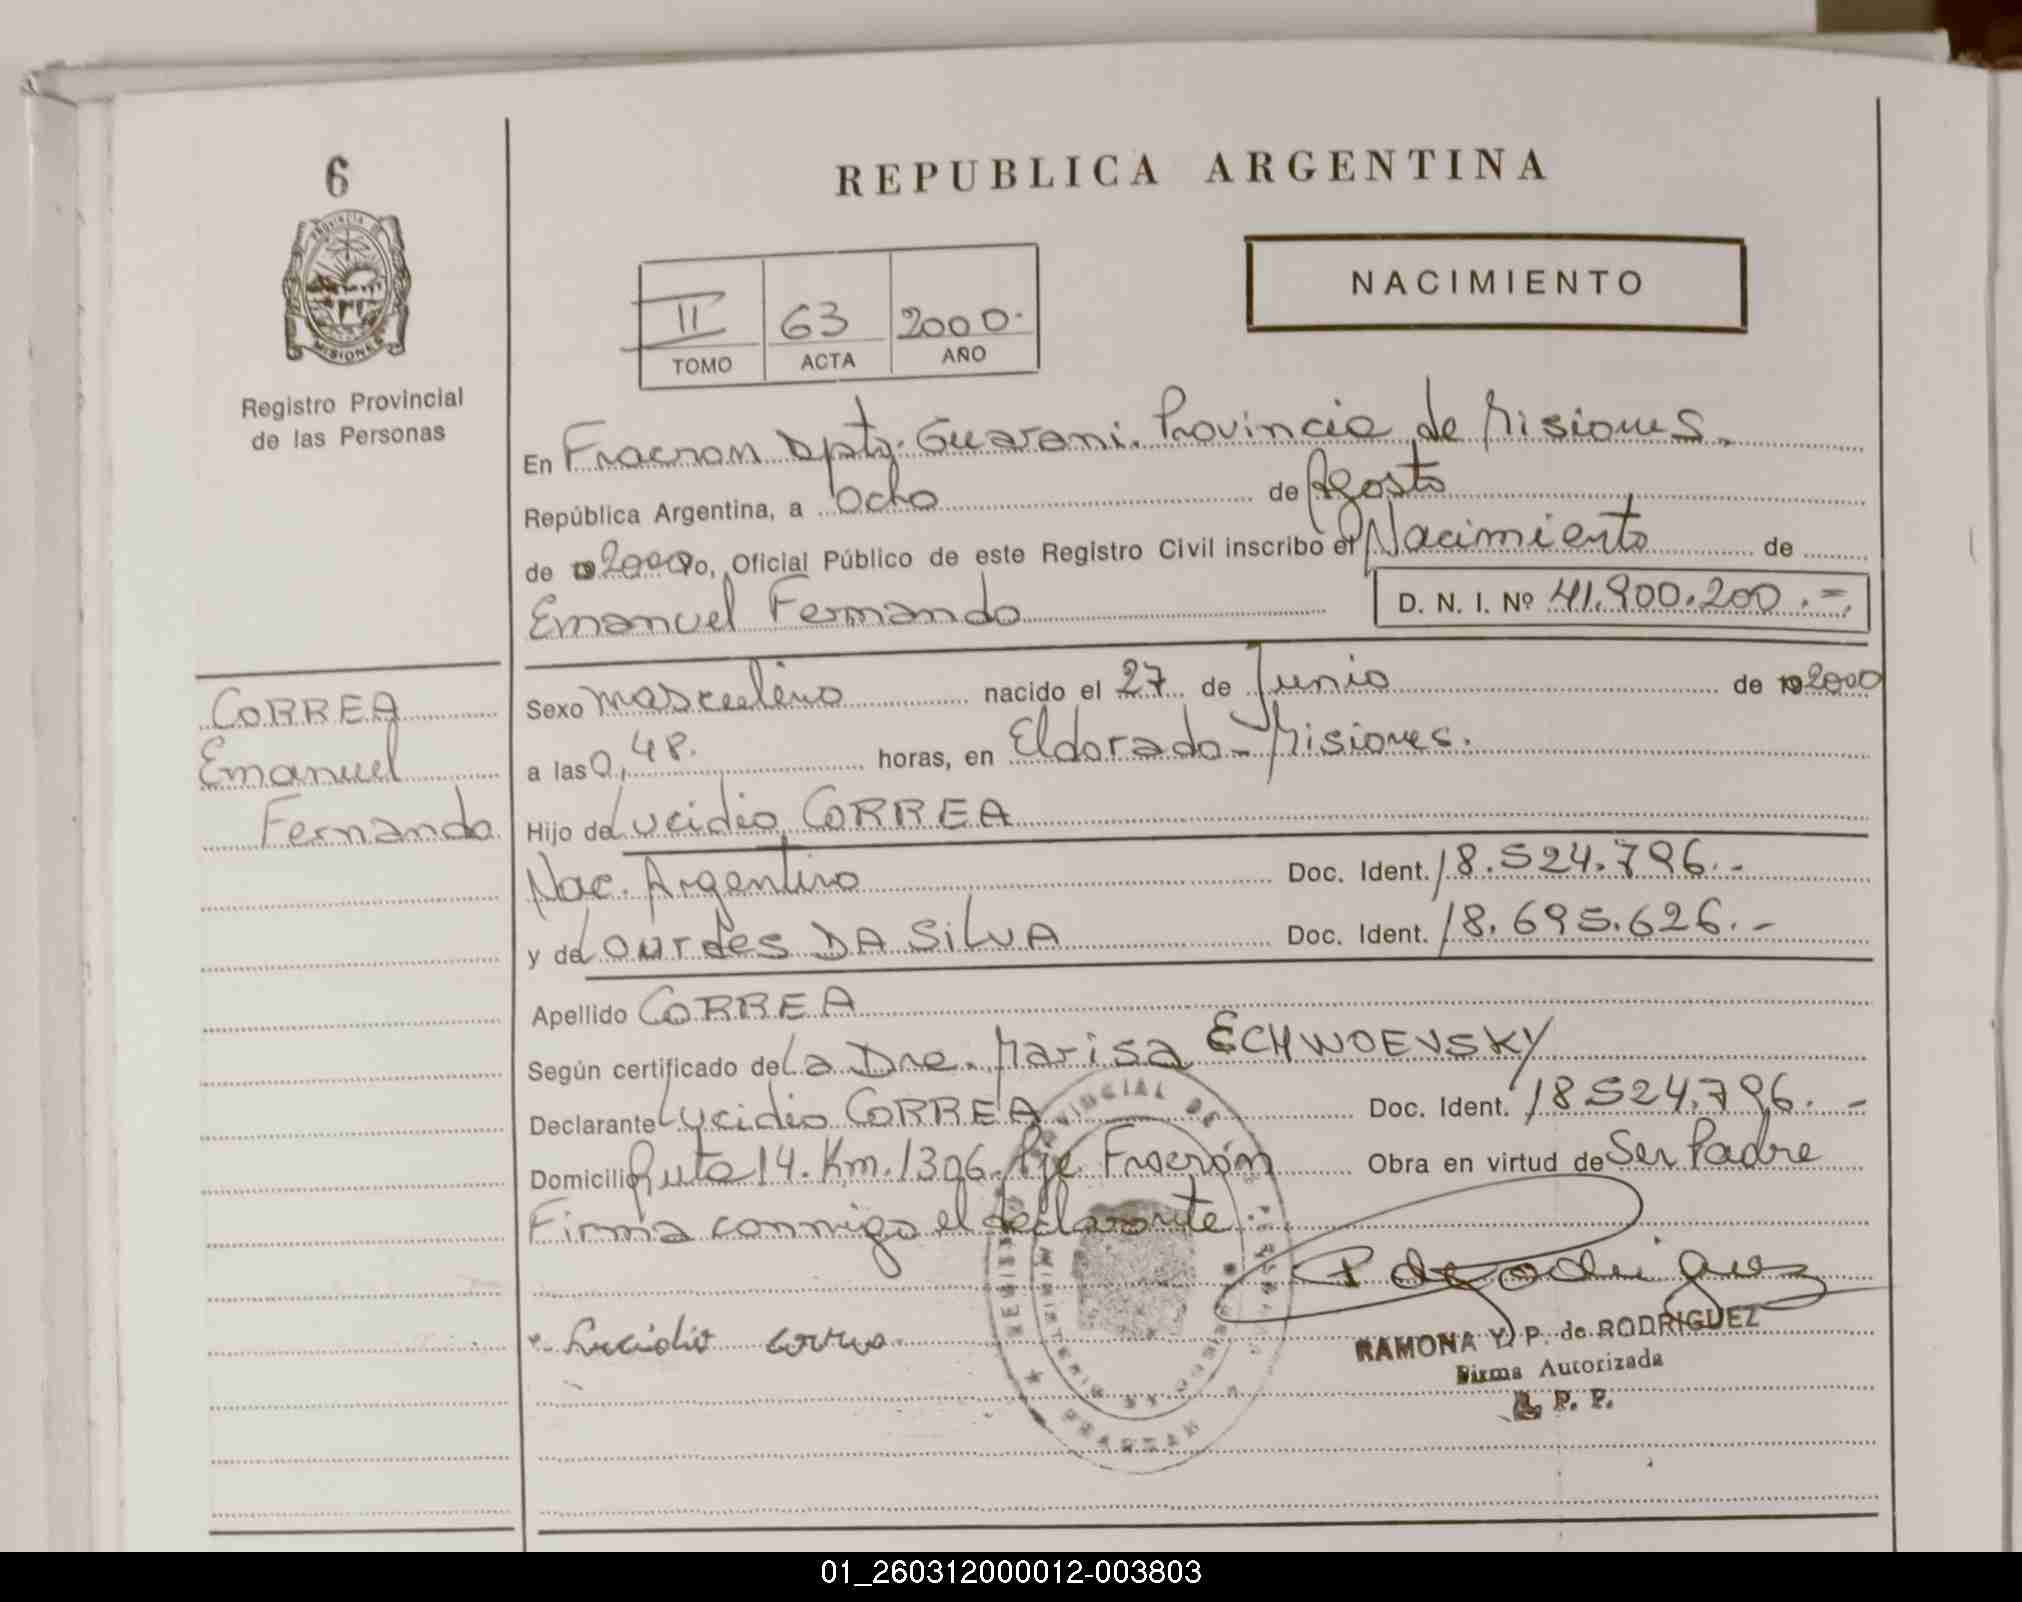 6
PROVINCIA DE
MISIONES
Registro Provincial
de las Personas
REPUBLICA ARGENTINA
NACIMIENTO
II 63 2000.
TOMO ACTA AÑO
En Fracran Dpto. Guarani. Provincia de Misiones.
República Argentina, a Ocho de Agosto
de 2000 Yo, Oficial Público de este Registro Civil inscribo el Nacimiento de
Emanuel Fernando D. N. I. Nº 41.900.200.=.
CORREA
Emanuel
Fernando
Sexo masculino nacido el 27 de Junio de 192000
a las 0,48. horas, en Eldorado - Misiones.
Hijo de Lucidio CORREA
Nac. Argentino Doc. Ident. 18.524.796.-
y de Lourdes DA SILVA Doc. Ident. 18.695.626.-
Apellido CORREA
Según certificado de La Dra. Marisa ECHWOEVSKY
Declarante Lucidio CORREA Doc. Ident. 18524.796.-
Domicilio Ruta 14. Km. 1306. Pje. Fracrán Obra en virtud de Ser Padre
Firma conmigo el declarante.
Lucidio Correa
P de Rodriguez
RAMONA Y. P. de RODRIGUEZ
Firma Autorizada
R. P. P.
01_260312000012-003803